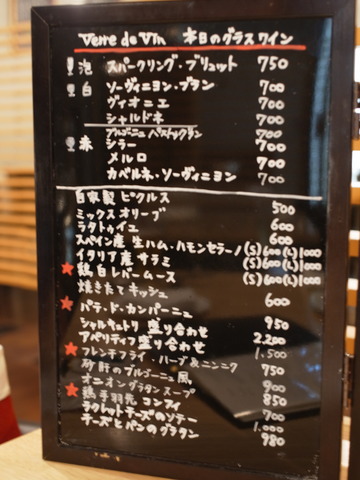 Verre de Vin 本日のグラスワイン
泡 スパークリング・ブリュット 750
白 ソーヴィニヨン・ブラン 700
ヴィオニエ 700
シャルドネ 700
ブルゴーニュ 700
赤 シラー 700
メルロ 700
カベルネ・ソーヴィニヨン 700
自家製 ピクルス 500
ミックス オリーブ 600
ラタトゥイユ 600
スペイン産 生ハム・ハモンセラーノ (S)600 (L)1000
イタリア産 サラミ (S)600 (L)1000
★ 鶏白レバームース (S)600 (L)1000
焼きたてキッシュ 600
★ パテ・ド・カンパーニュ 950
シャルキュトリ 盛り合わせ 2,200
アペリティフ 盛り合わせ 1,500
★ フレンチフライ・ハーブ&ニンニク 750
砂肝のブルゴーニュ風 900
オニオングラタンスープ 850
★ 鶏手羽先 コンフィ 700
ラクレットチーズのソテー 1,000
チーズとパンのグラタン 980